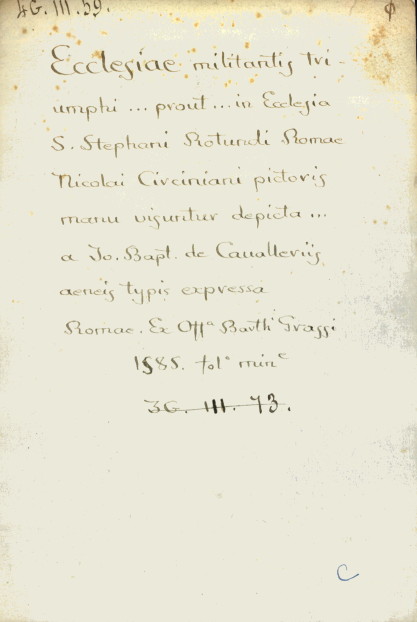 4G. III. 59.
φ
Ecclesiae militantis tri-
umphi ... prout ... in Ecclesia
S. Stephani Rotundi Romae
Nicolai Circiniani pictoris
manu visuntur depicta ...
a Jo. Bapt. de Cavalleriis
aeneis typis expressa
Romae. Ex Offa Barthi Grassi
1585. folo minc
36. III. 73.
C